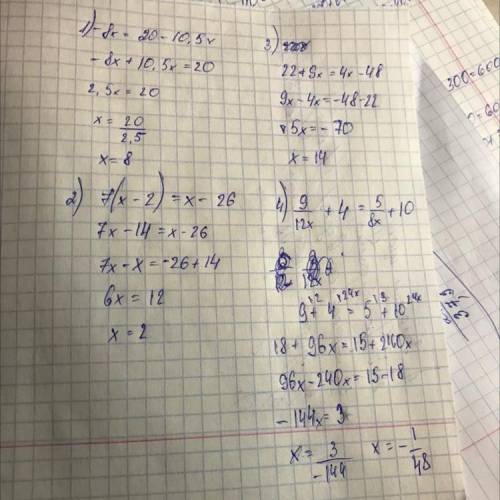 1) -8x = 20 - 10,5x
-8x + 10,5x = 20
2,5x = 20
x = 20/2,5
x = 8
2) 7(x - 2) = x - 26
7x - 14 = x - 26
7x - x = -26 + 14
6x = 12
x = 2
3)
22 + 9x = 4x - 48
9x - 4x = -48 - 22
5x = - 70
x = 14
4) 9/12x + 4 = 5/8x + 10
9^12 + 4^124x = 5^13 + 10^24x
18 + 96x = 15 + 240x
96x - 240x = 15 - 18
- 144x = 3
x = 3/-144 x = - 1/48
300 = 600